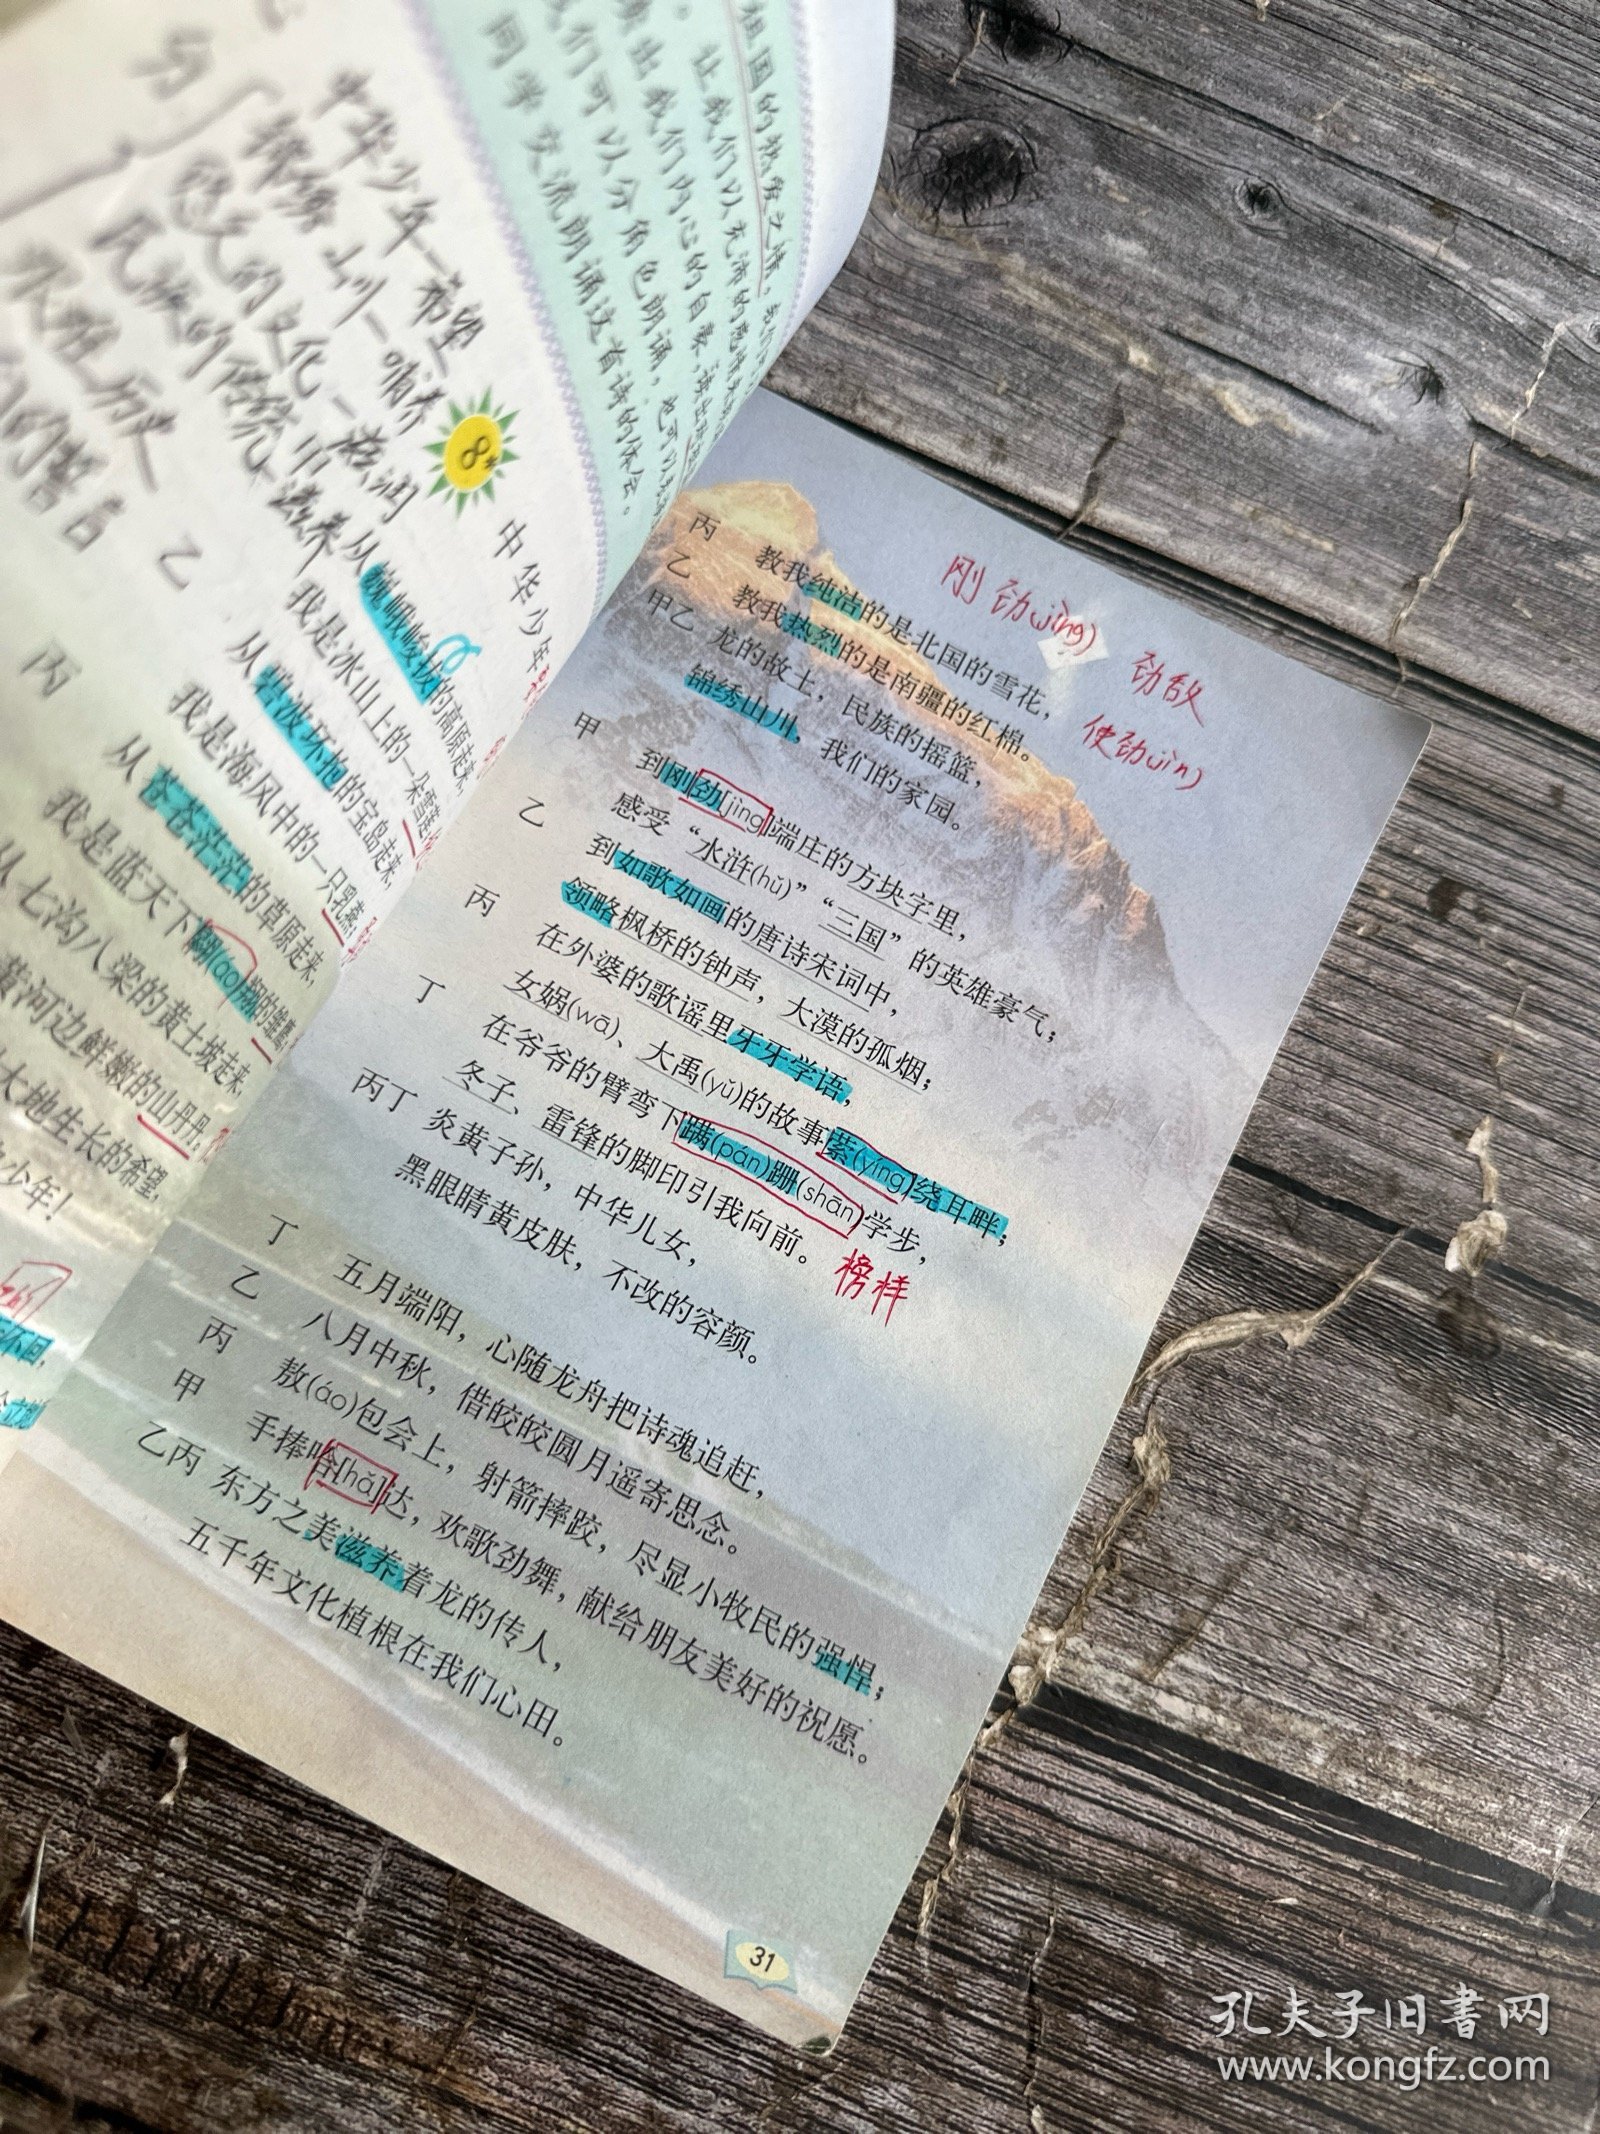 祖国的热爱之情。
。让我们以充沛的感情
出我们内心的自豪,读出
我们可以分角色朗诵,也可以
同学交流朗诵这首诗的体会。
中华少年—希望
锦绣山川—哺育
的文化—滋润
民族的传统—滋养
历史
的誓言
8*
中华少年
甲 从巍峨峻拔的高原走来,
我是冰山上的一朵雪莲;
乙 从碧波环抱的宝岛走来,
我是海风中的一只乳燕;
丙 从苍苍茫茫的草原走来,
我是蓝天下翱(áo)翔的雏鹰;
从七沟八梁的黄土坡走来,
黄河边鲜嫩的山丹丹。
大地生长的希望,
少年!
丙 教我纯洁的是北国的雪花,
乙 教我热烈的是南疆的红棉。
甲乙 龙的故土,民族的摇篮,
锦绣山川,我们的家园。
甲 到刚劲[jìng]端庄的方块字里,
感受“水浒(hǔ)”“三国”的英雄豪气;
乙 到如歌如画的唐诗宋词中,
领略枫桥的钟声,大漠的孤烟;
丙 在外婆的歌谣里牙牙学语,
女娲(wā)、大禹(yǔ)的故事萦(yíng)绕耳畔;
丁 在爷爷的臂弯下蹒(pán)跚(shān)学步,
冬子、雷锋的脚印引我向前。
丙丁 炎黄子孙,中华儿女,
黑眼睛黄皮肤,不改的容颜。
丁 五月端阳,心随龙舟把诗魂追赶,
乙 八月中秋,借皎皎圆月遥寄思念。
丙 敖(áo)包会上,射箭摔跤,尽显小牧民的强悍;
甲 手捧哈[hǎ]达,欢歌劲舞,献给朋友美好的祝愿。
乙丙 东方之美滋养着龙的传人,
五千年文化植根在我们心田。
刚劲(jìng)
劲敌
使劲(jìn)
榜样
31
孔夫子旧书网
www.kongfz.com